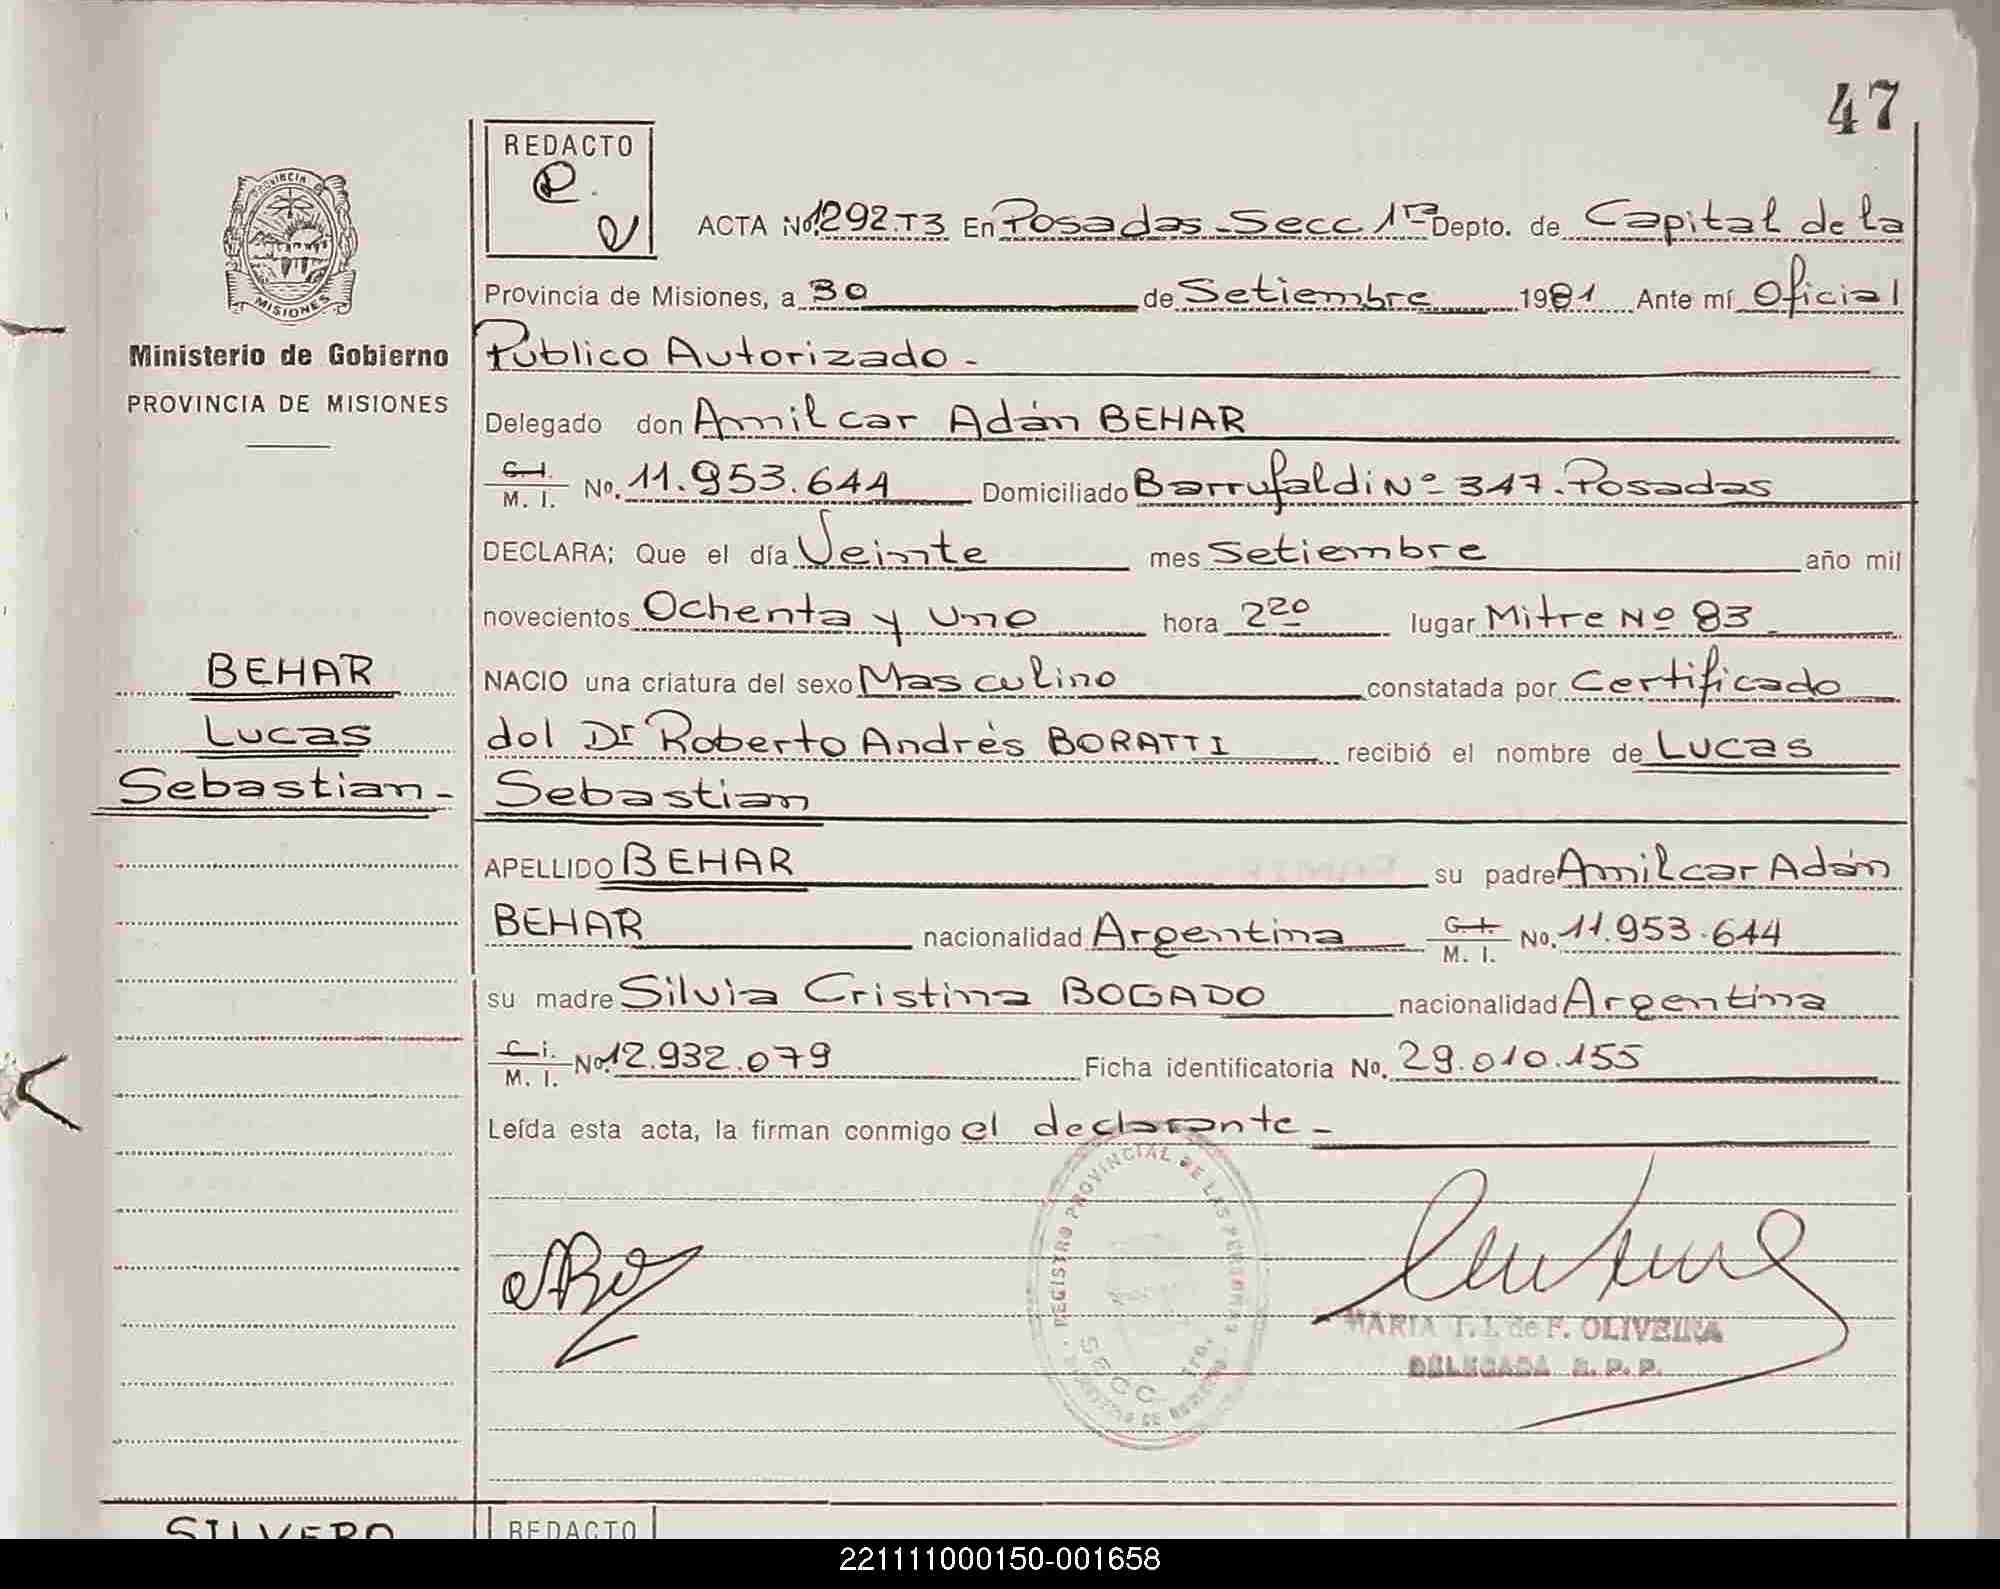 47
PROVINCIA DE
MISIONES
Ministerio de Gobierno
PROVINCIA DE MISIONES
BEHAR
Lucas
Sebastian-
REDACTO
ACTA No. 1292.T3 En Posadas-Secc 1ra Depto. de Capital de la
Provincia de Misiones, a 30 de Setiembre 1981 Ante mí Oficial
Publico Autorizado-
Delegado don Amilcar Adán BEHAR
C.I. M. I. No. 11.953.644 Domiciliado Barrufaldi Nº 347.Posadas
DECLARA; Que el día Veinte mes Setiembre año mil
novecientos Ochenta y Uno hora 2 20 lugar Mitre Nº 83
NACIO una criatura del sexo Masculino constatada por Certificado
dol Dr Roberto Andrés BORATTI recibió el nombre de Lucas
Sebastian
APELLIDO BEHAR su padre Amilcar Adán
BEHAR nacionalidad Argentina C.I. M. I. No. 11.953.644
su madre Silvia Cristina BOGADO nacionalidad Argentina
C.I. M. I. No. 12.932.079 Ficha identificatoria No. 29.010.155
Leída esta acta, la firman conmigo el declarante-
REGISTRO PROVINCIAL DE LAS PERSONAS
SECC 1ra.
MARIA T. I. de F. OLIVEIRA
DELEGADA R. P. P.
SILVERO
REDACTO
221111000150-001658